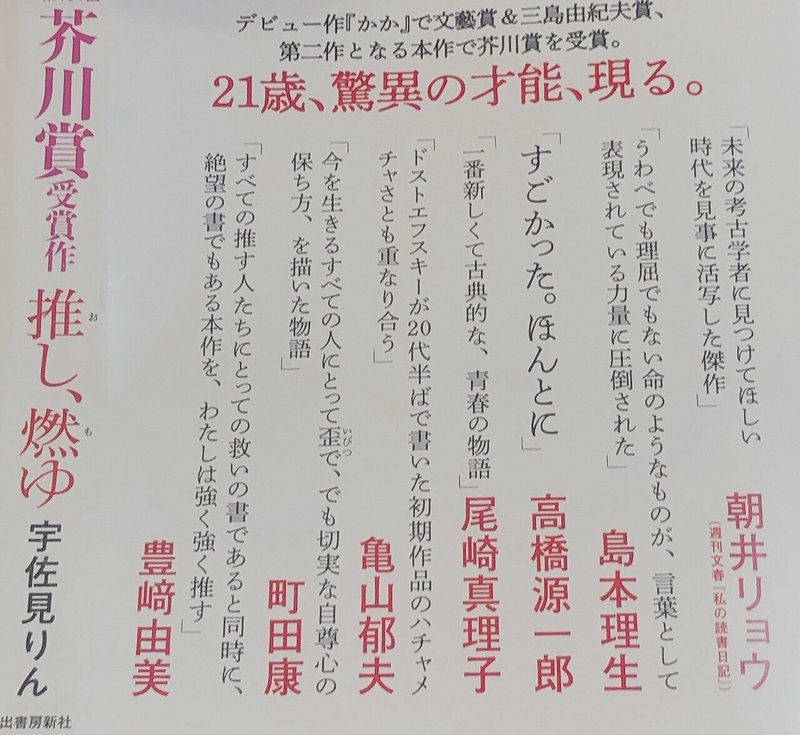 デビュー作『かか』で文藝賞&三島由紀夫賞、
第二作となる本作で芥川賞を受賞。
21歳、驚異の才能、現る。
「未来の考古学者に見つけてほしい
時代を見事に活写した傑作」
朝井リョウ
(週刊文春「私の読書日記」)
「うわべでも理屈でもない命のようなものが、言葉として
表現されている力量に圧倒された」
島本理生
「すごかった。ほんとに」
高橋源一郎
「一番新しくて古典的な、青春の物語」
尾崎真理子
「ドストエフスキーが20代半ばで書いた初期作品のハチャメ
チャさとも重なり合う」
亀山郁夫
「今を生きるすべての人にとって歪で、でも切実な自尊心の
いびつ
保ち方、を描いた物語」
町田康
「すべての推す人たちにとっての救いの書であると同時に、
絶望の書でもある本作を、わたしは強く強く推す」
豊﨑由美
芥川賞受賞作
推し、燃ゆ
お
も
宇佐見りん
出書房新社